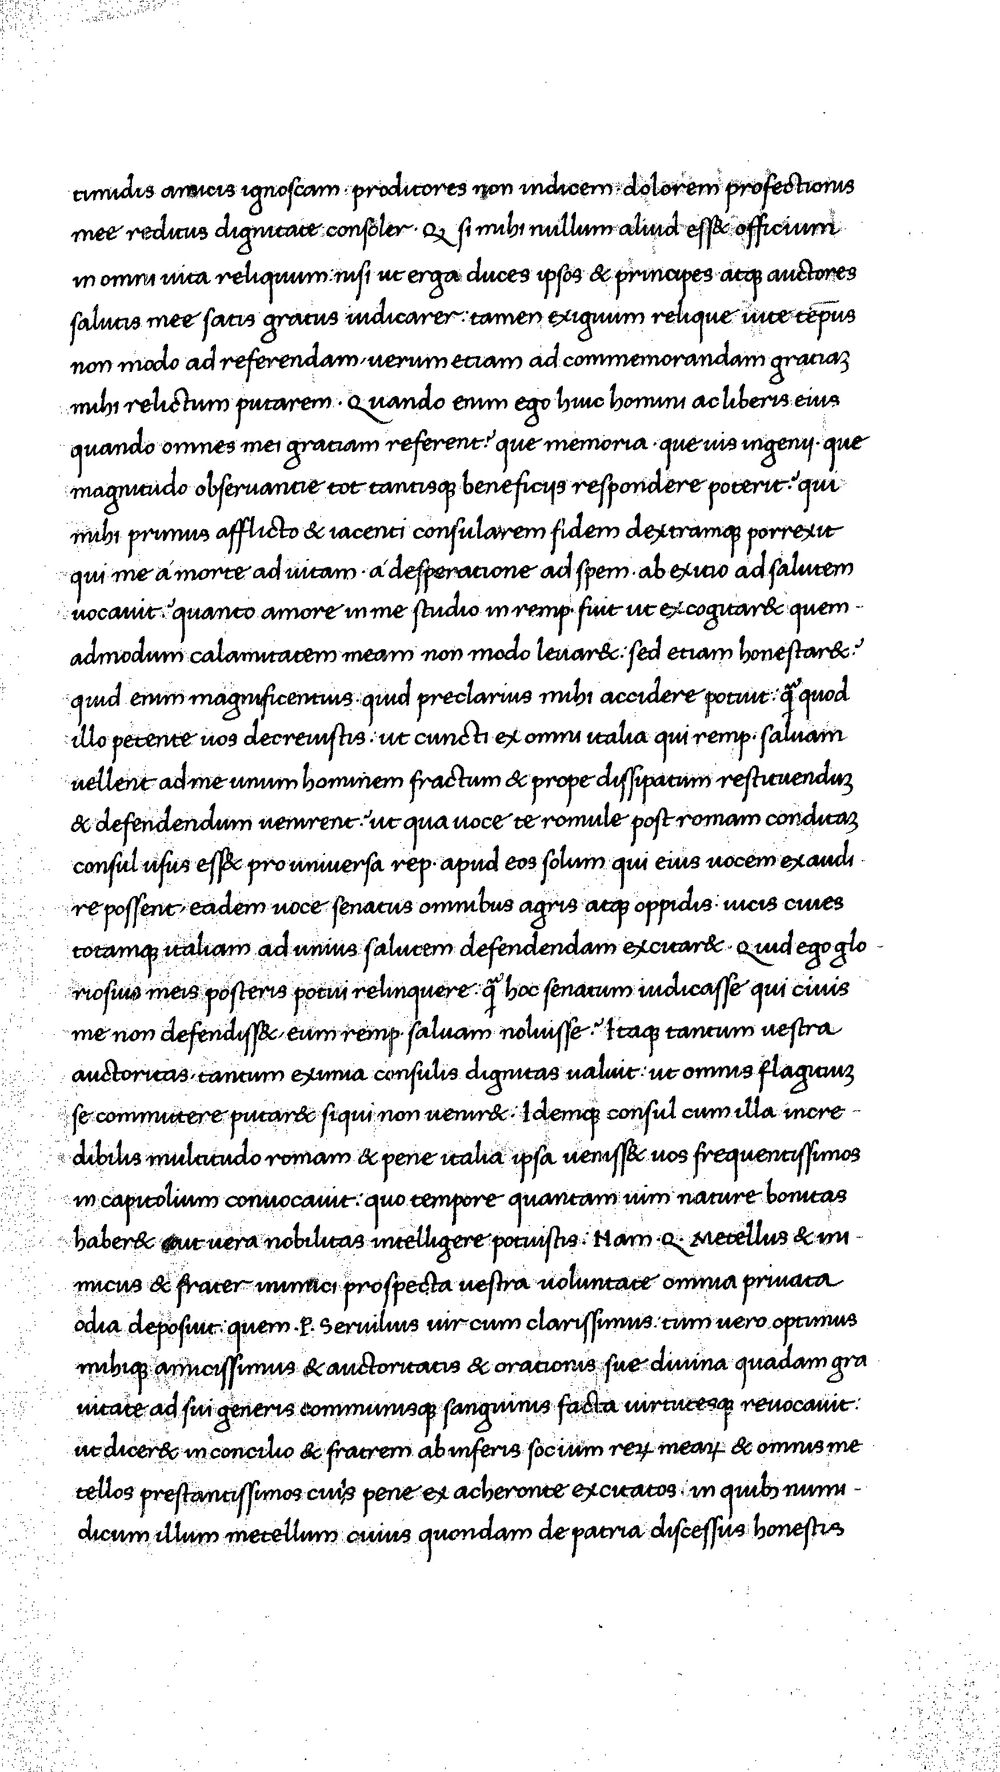 timidis amicis ignoscam · proditores non indicem · dolorem profectionis
mee reditus dignitate consoler · Q si mihi nullum aliud esset officium
in omni uita reliquum: nisi ut erga duces ipsos & principes atq; auctores
salutis mee satis gratus iudicarer: tamen exiguum relique uite tēpus
non modo ad referendam · uerum etiam ad commemorandam gratiaꝫ
mihi relictum putarem · Quando enim ego huic homini ac liberis eius
quando omnes mei gratiam referent? que memoria · que uis ingenij · que
magnitudo obseruantie tot tantisq; beneficijs respondere poterit? qui
mihi primus afflicto & iacenti consularem fidem dextramq; porrexit
qui me a morte ad uitam · a desperatione ad spem · ab exitio ad salutem
uocauit? quanto amore in me studio in remp· fuit ut excogitar& quem-
admodum calamitatem meam non modo leuar&: sed etiam honestar&?
quid enim magnificentius · quid preclarius mihi accidere potuit: q̄ quod
illo petente uos decreuistis: ut cuncti ex omni italia qui remp· saluam
uellent ad me unum hominem fractum & prope dissipatum restituenduꝫ
& defendendum uenirent? ut qua uoce te romule post romam conditaꝫ
consul usus ess& pro uniuersa rep· apud eos solum qui eius uocem exaudi-
re possent · eadem uoce senatus omnibus agris atq; oppidis · uicis ciues
totamq; italiam ad unius salutem defendendam excitar& · Quid ego glo-
riosius meis posteris potui relinquere: q̄ hoc senatum iudicasse qui ciuis
me non defendiss& · eum remp· saluam noluisse? Itaq; tantum uestra
auctoritas · tantum eximia consulis dignitas ualuit: ut omnis flagitiuꝫ
se committere putar& siqui non uenir& · Idemq; consul cum illa incre-
dibilis multitudo romam & pene italia ipsa ueniss& uos frequentissimos
in capitolium conuocauit: quo tempore quantam uim nature bonitas
haber& aut uera nobilitas intelligere potuistis: Nam · Q · Metellus & ini-
micus & frater inimici prospecta uestra uoluntate omnia priuata
odia deposuit: quem · P. Seruilius uir cum clarissimus · tum uero optimus
mihiq; amicissimus & auctoritatis & orationis sue diuina quadam gra
uitate ad sui generis communisq; sanguinis facta uirtutesq; reuocauit:
ut dicer& in concilio & fratrem ab inferis socium reꝝ meaꝝ & omnis me
tellos prestantissimos ciuis pene ex acheronte excitatos · in quibꝫ numi-
dicum illum metellum cuius quondam de patria discessus honestis